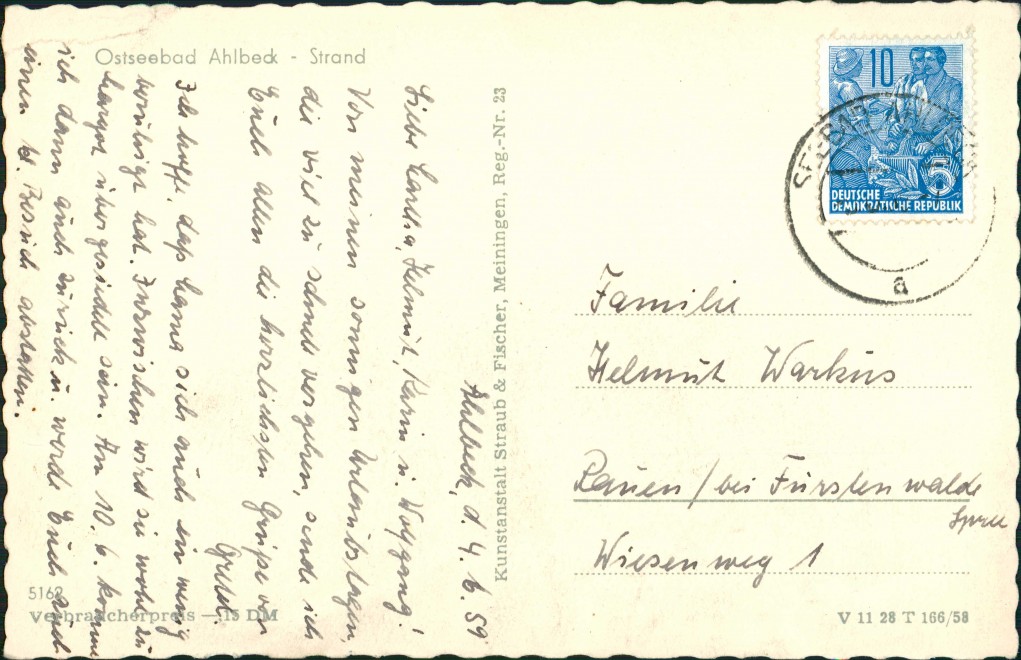 Ostseebad Ahlbeck - Strand
Ahlbeck, d. 4. 6. 59
Liebe Helmut, Karin u. Wolfgang!
Von meinen sonnigen Urlaubstagen,
die viel zu schnell vergehen, sende ich
Euch allen die herzlichsten Grüße
Ich hoffe, daß sich auch ein wenig
beruhigt hat. Inzwischen wird sie wohl zu
übergesiedelt sein. Am 10. 6. komme
ich dann auch zurück u. werde Euch auch
einen kl. Besuch abstatten.
5162
Verbraucherpreis —,15 DM
Kunstanstalt Straub & Fischer, Meiningen, Reg.-Nr. 23
10
5
DEUTSCHE
DEMOKRATISCHE REPUBLIK
a
Familie
Helmut Warkus
Rauen / bei Fürstenwalde
Spree
Wiesenweg 1
V 11 28 T 166/58